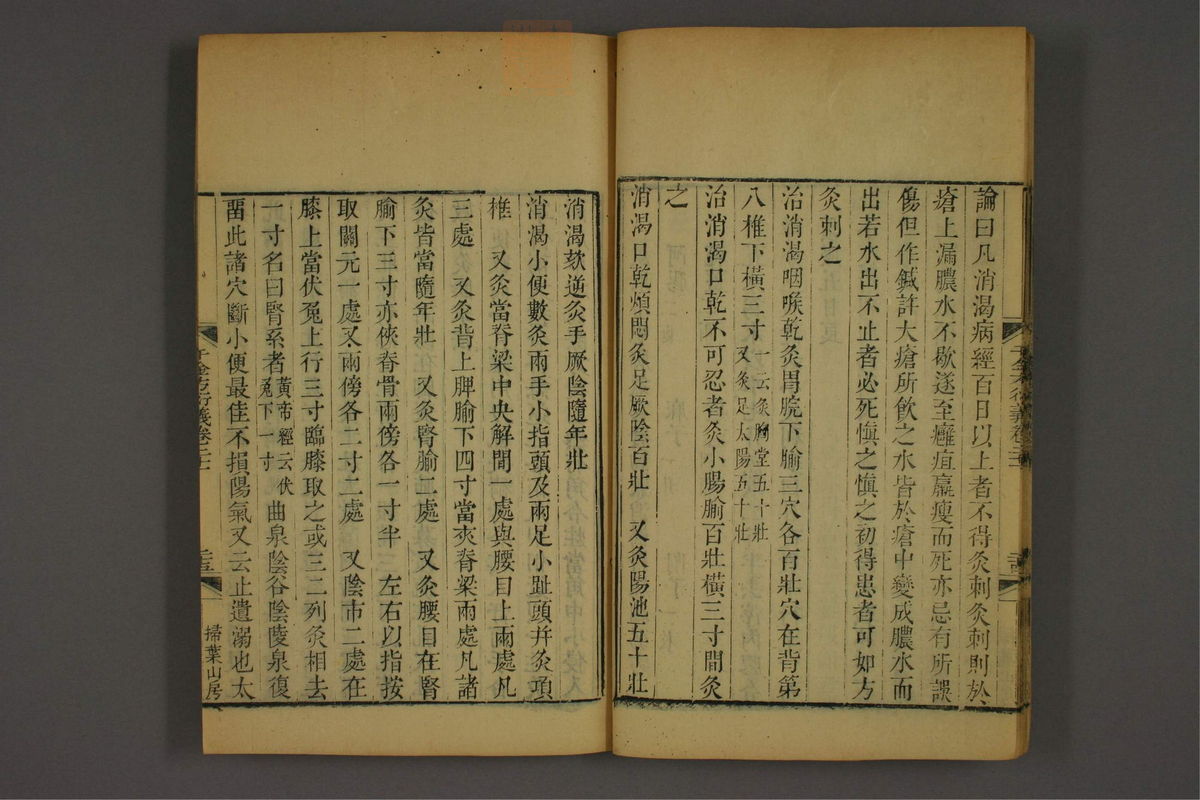 論曰凡消渴病經百日以上者不得灸刺灸刺則於
瘡上漏膿水不歇遂至癰疽羸瘦而死亦忌有所誤
傷但作鍼許大瘡所飲之水皆於瘡中變成膿水而
出若水出不止者必死慎之慎之初得患者可如方
灸刺之
治消渴咽喉乾灸胃脘下腧三穴各百壯穴在背第
八椎下橫三寸一云灸胸堂五十壯又灸足太陽五十壯
治消渴口乾不可忍者灸小腸腧百壯橫三寸間灸
之
消渴口乾煩悶灸足厥陰百壯　又灸陽池五十壯
消渴欬逆灸手厥陰隨年壯
消渴小便數灸兩手小指頭及兩足小趾頭并灸項
椎　又灸當脊梁中央解間一處與腰目上兩處凡
三處　又灸背上脾腧下四寸當夾脊梁兩處凡諸
灸皆當隨年壯　又灸腎腧二處　又灸腰目在腎
腧下三寸亦俠脊骨兩傍各一寸半　左右以指按
取關元一處又兩傍各二寸二處　又陰市二處在
膝上當伏兔上行三寸臨膝取之或三二列灸相去
一寸名曰腎系者黃帝經云伏兔下一寸曲泉陰谷陰陵泉復
畱此諸穴斷小便最佳不損陽氣又云止遺溺也太
千金方衍義卷二十一
掃葉山房